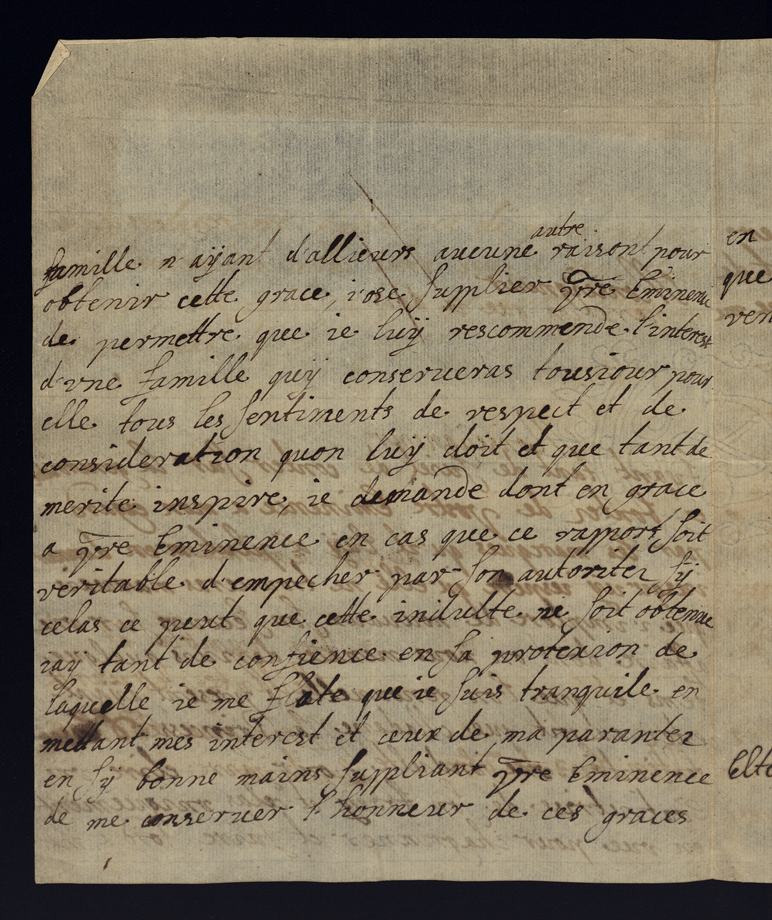 autre
famille n aÿant d'allieurs aucune raisont pour
obtenir cette grace, i'ose supplier vre Eminence
de permettre que ie luÿ rescommende l'interest
d'vne famille quÿ conserueras tousiour pour
elle tous les sentiments de respect et de
consideration quon luÿ doit et que tant de
merite inspire, ie demande dont en grace
a vre Eminence en cas que ce rapport soit
veritable d'empecher par son autoritez sÿ
celas ce peut que cette indulte ne soit obtenue
iaÿ tant de confience en sa protexion de
laquelle ie me flate que ie suis tranquile en
mettant mes interest et ceux de ma parantez
en sÿ bonne mains suppliant vre Eminence
de me conseruer l'honneur de ces graces
en
que
ven
Elte